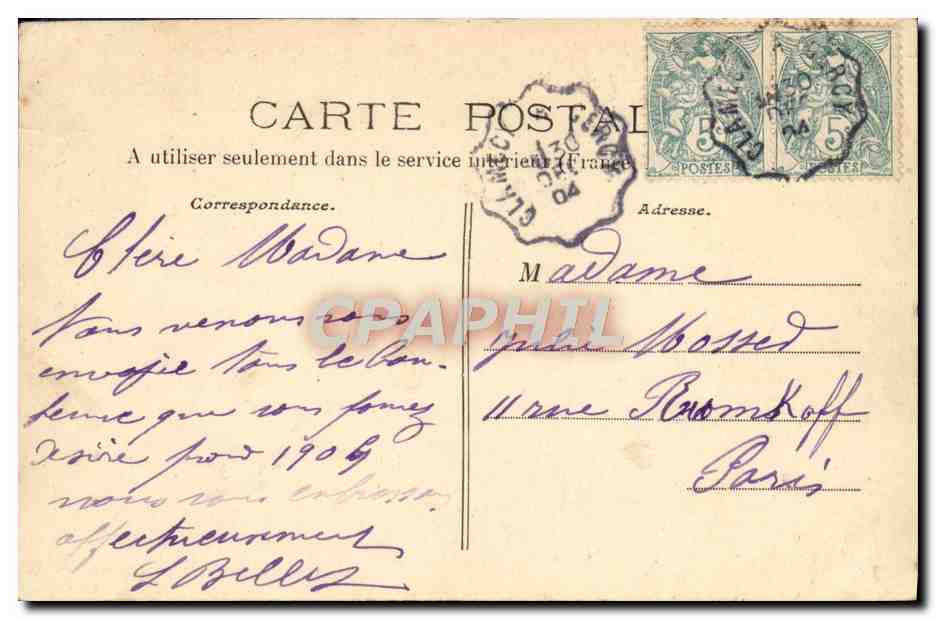 CARTE POSTALE
A utiliser seulement dans le service intérieur (France
Correspondance.
Adresse.
CLAMECY
30
DEC
04
CLAMECY
30
04
5 5
POSTES POSTES
CPAPHIL
Chère Madame
Nous venons vous
envoyée tous le bon-
heur que vous pouvez
désiré pour 1905
nous vous embrassons
affectueusement
Madame
Mossed
11 rue
Paris